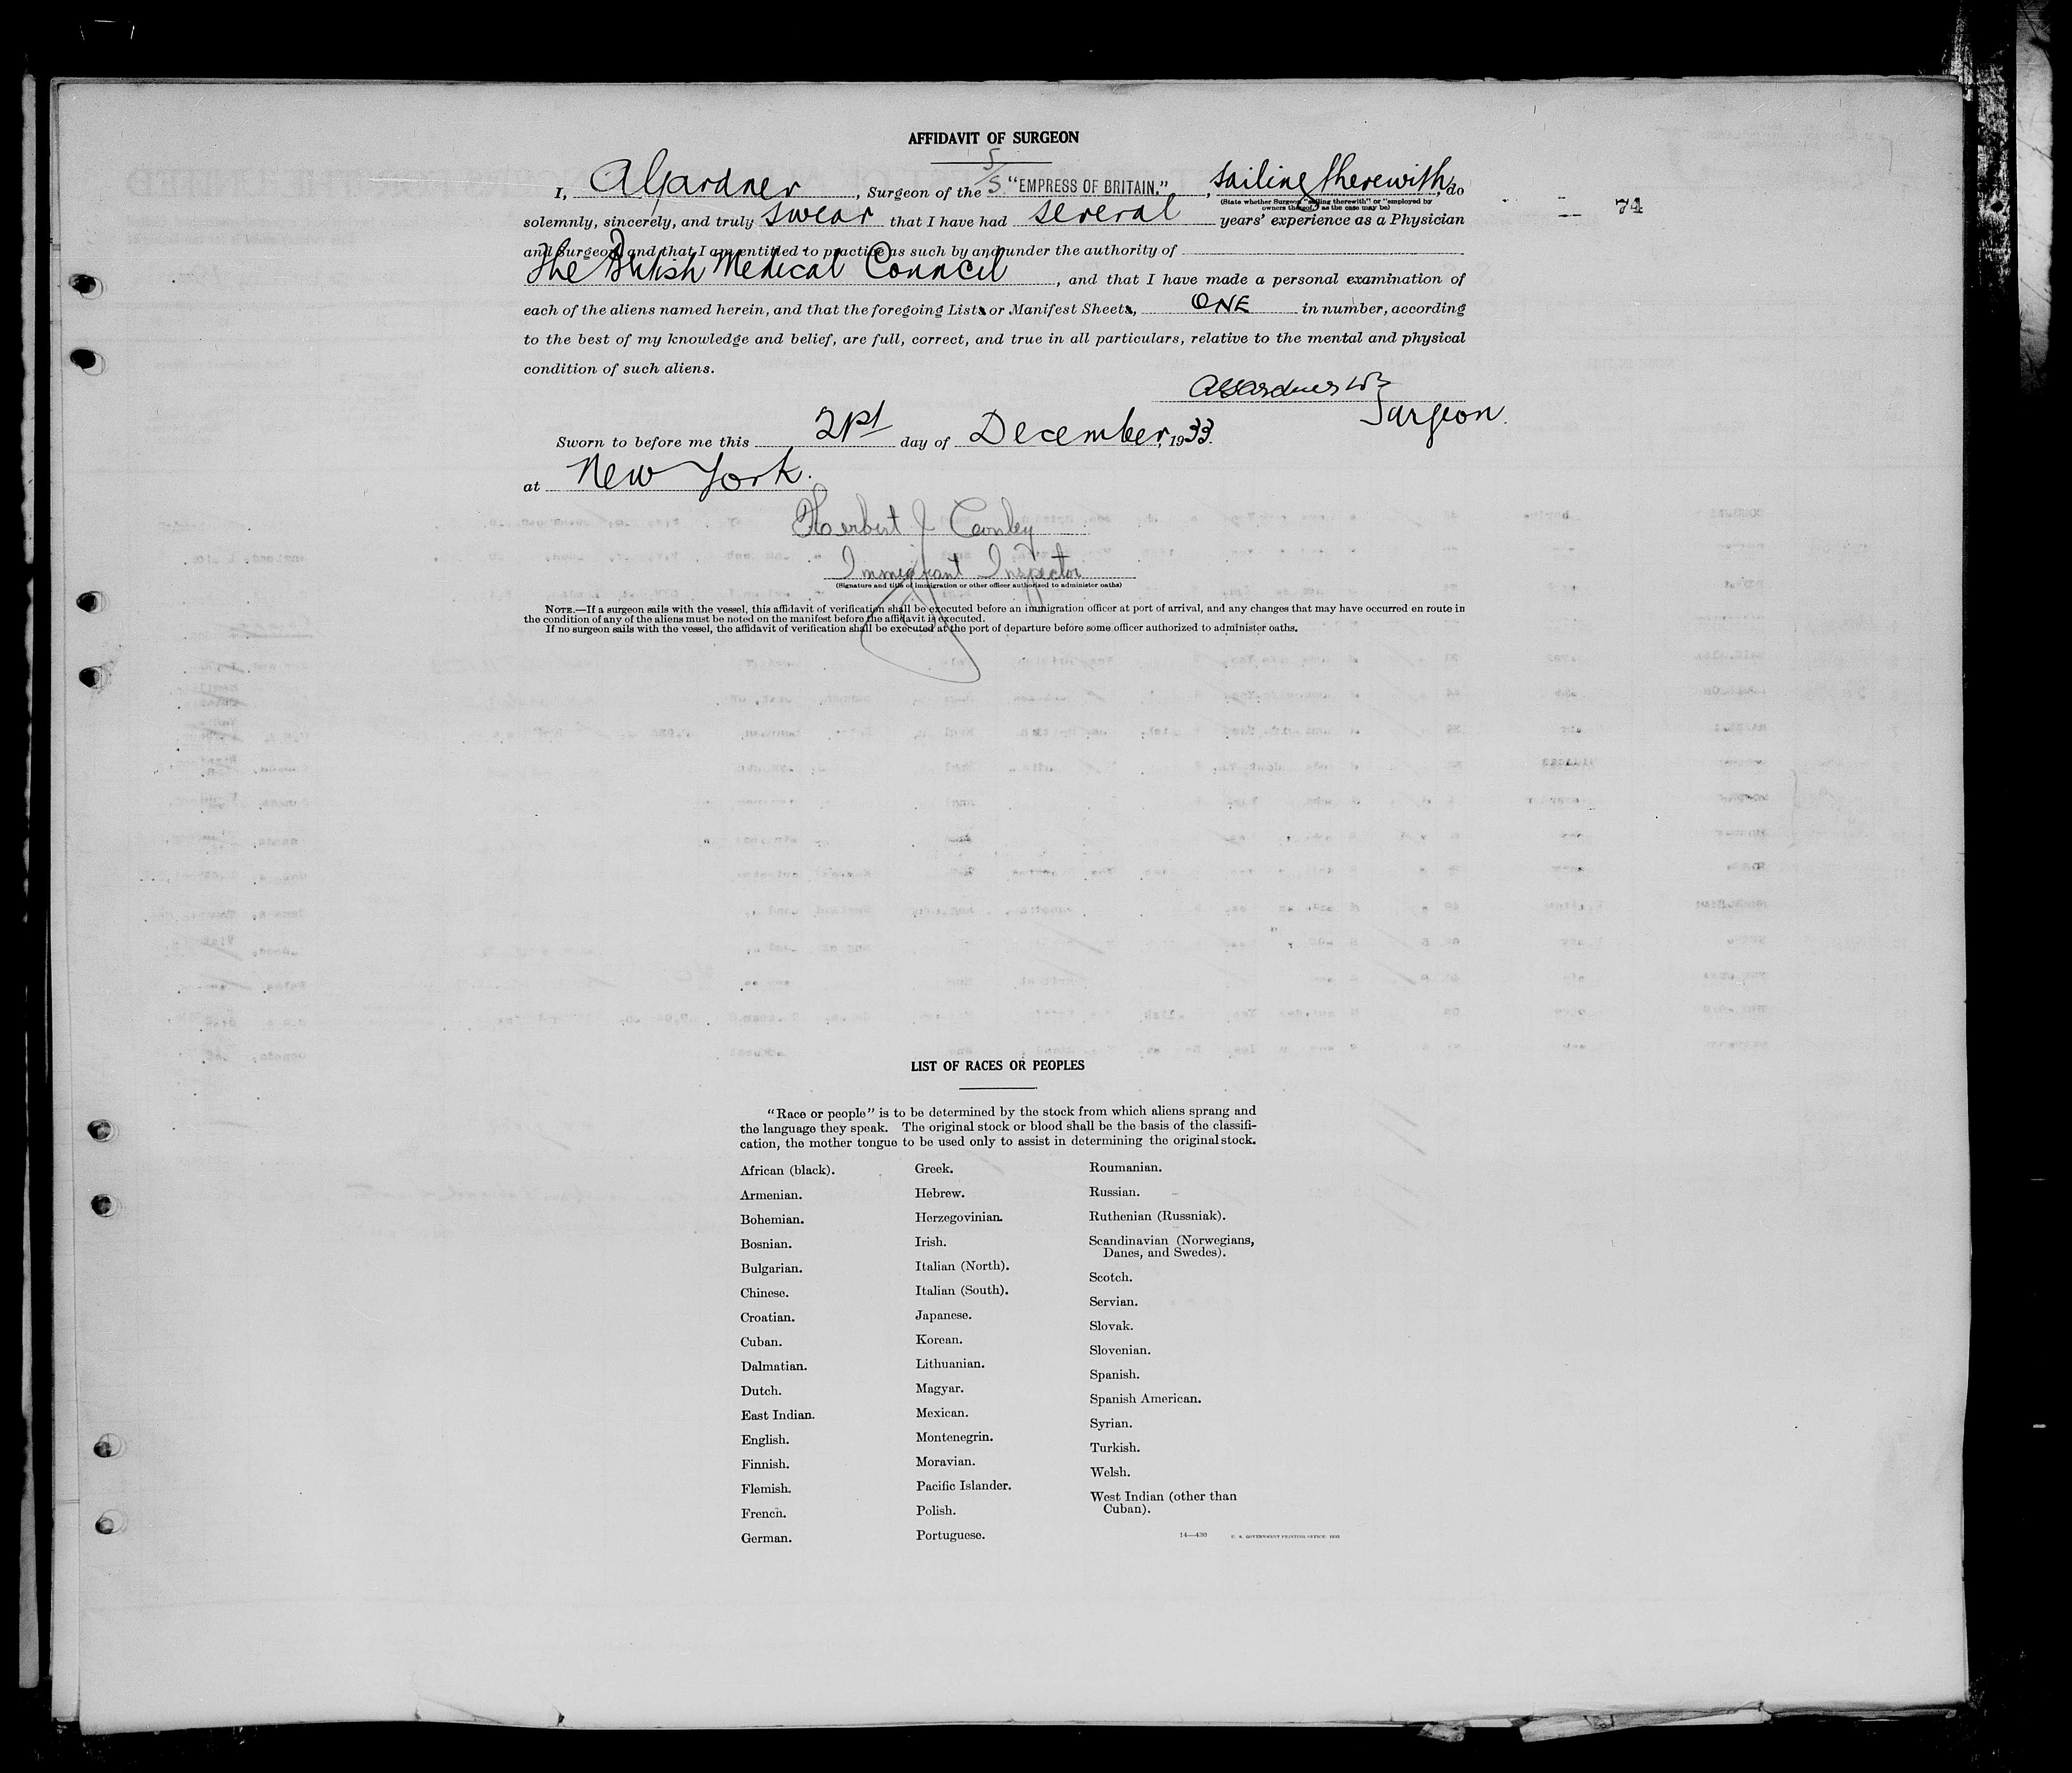 AFFIDAVIT OF SURGEON
I, A Gardner, Surgeon of the S/S. "EMPRESS OF BRITAIN.", sailing therewith, do
(State whether Surgeon "sailing therewith" or "employed by owners thereof," as the case may be)
solemnly, sincerely, and truly swear that I have had several years' experience as a Physician
74
and Surgeon and that I am entitled to practice as such by and under the authority of
The British Medical Council, and that I have made a personal examination of
each of the aliens named herein, and that the foregoing Lists or Manifest Sheets, ONE in number, according
to the best of my knowledge and belief, are full, correct, and true in all particulars, relative to the mental and physical
condition of such aliens.
A Gardner
Surgeon.
Sworn to before me this 21st day of December, 1933.
at New York.
Herbert J Conley
Immigrant Inspector
(Signature and title of immigration or other officer authorized to administer oaths)
NOTE.—If a surgeon sails with the vessel, this affidavit of verification shall be executed before an immigration officer at port of arrival, and any changes that may have occurred en route in
the condition of any of the aliens must be noted on the manifest before the affidavit is executed.
If no surgeon sails with the vessel, the affidavit of verification shall be executed at the port of departure before some officer authorized to administer oaths.
LIST OF RACES OR PEOPLES
"Race or people" is to be determined by the stock from which aliens sprang and
the language they speak. The original stock or blood shall be the basis of the classifi-
cation, the mother tongue to be used only to assist in determining the original stock.
African (black).
Armenian.
Bohemian.
Bosnian.
Bulgarian.
Chinese.
Croatian.
Cuban.
Dalmatian.
Dutch.
East Indian.
English.
Finnish.
Flemish.
French.
German.
Greek.
Hebrew.
Herzegovinian.
Irish.
Italian (North).
Italian (South).
Japanese.
Korean.
Lithuanian.
Magyar.
Mexican.
Montenegrin.
Moravian.
Pacific Islander.
Polish.
Portuguese.
Roumanian.
Russian.
Ruthenian (Russniak).
Scandinavian (Norwegians,
Danes, and Swedes).
Scotch.
Servian.
Slovak.
Slovenian.
Spanish.
Spanish American.
Syrian.
Turkish.
Welsh.
West Indian (other than
Cuban).
14—430 U. S. GOVERNMENT PRINTING OFFICE